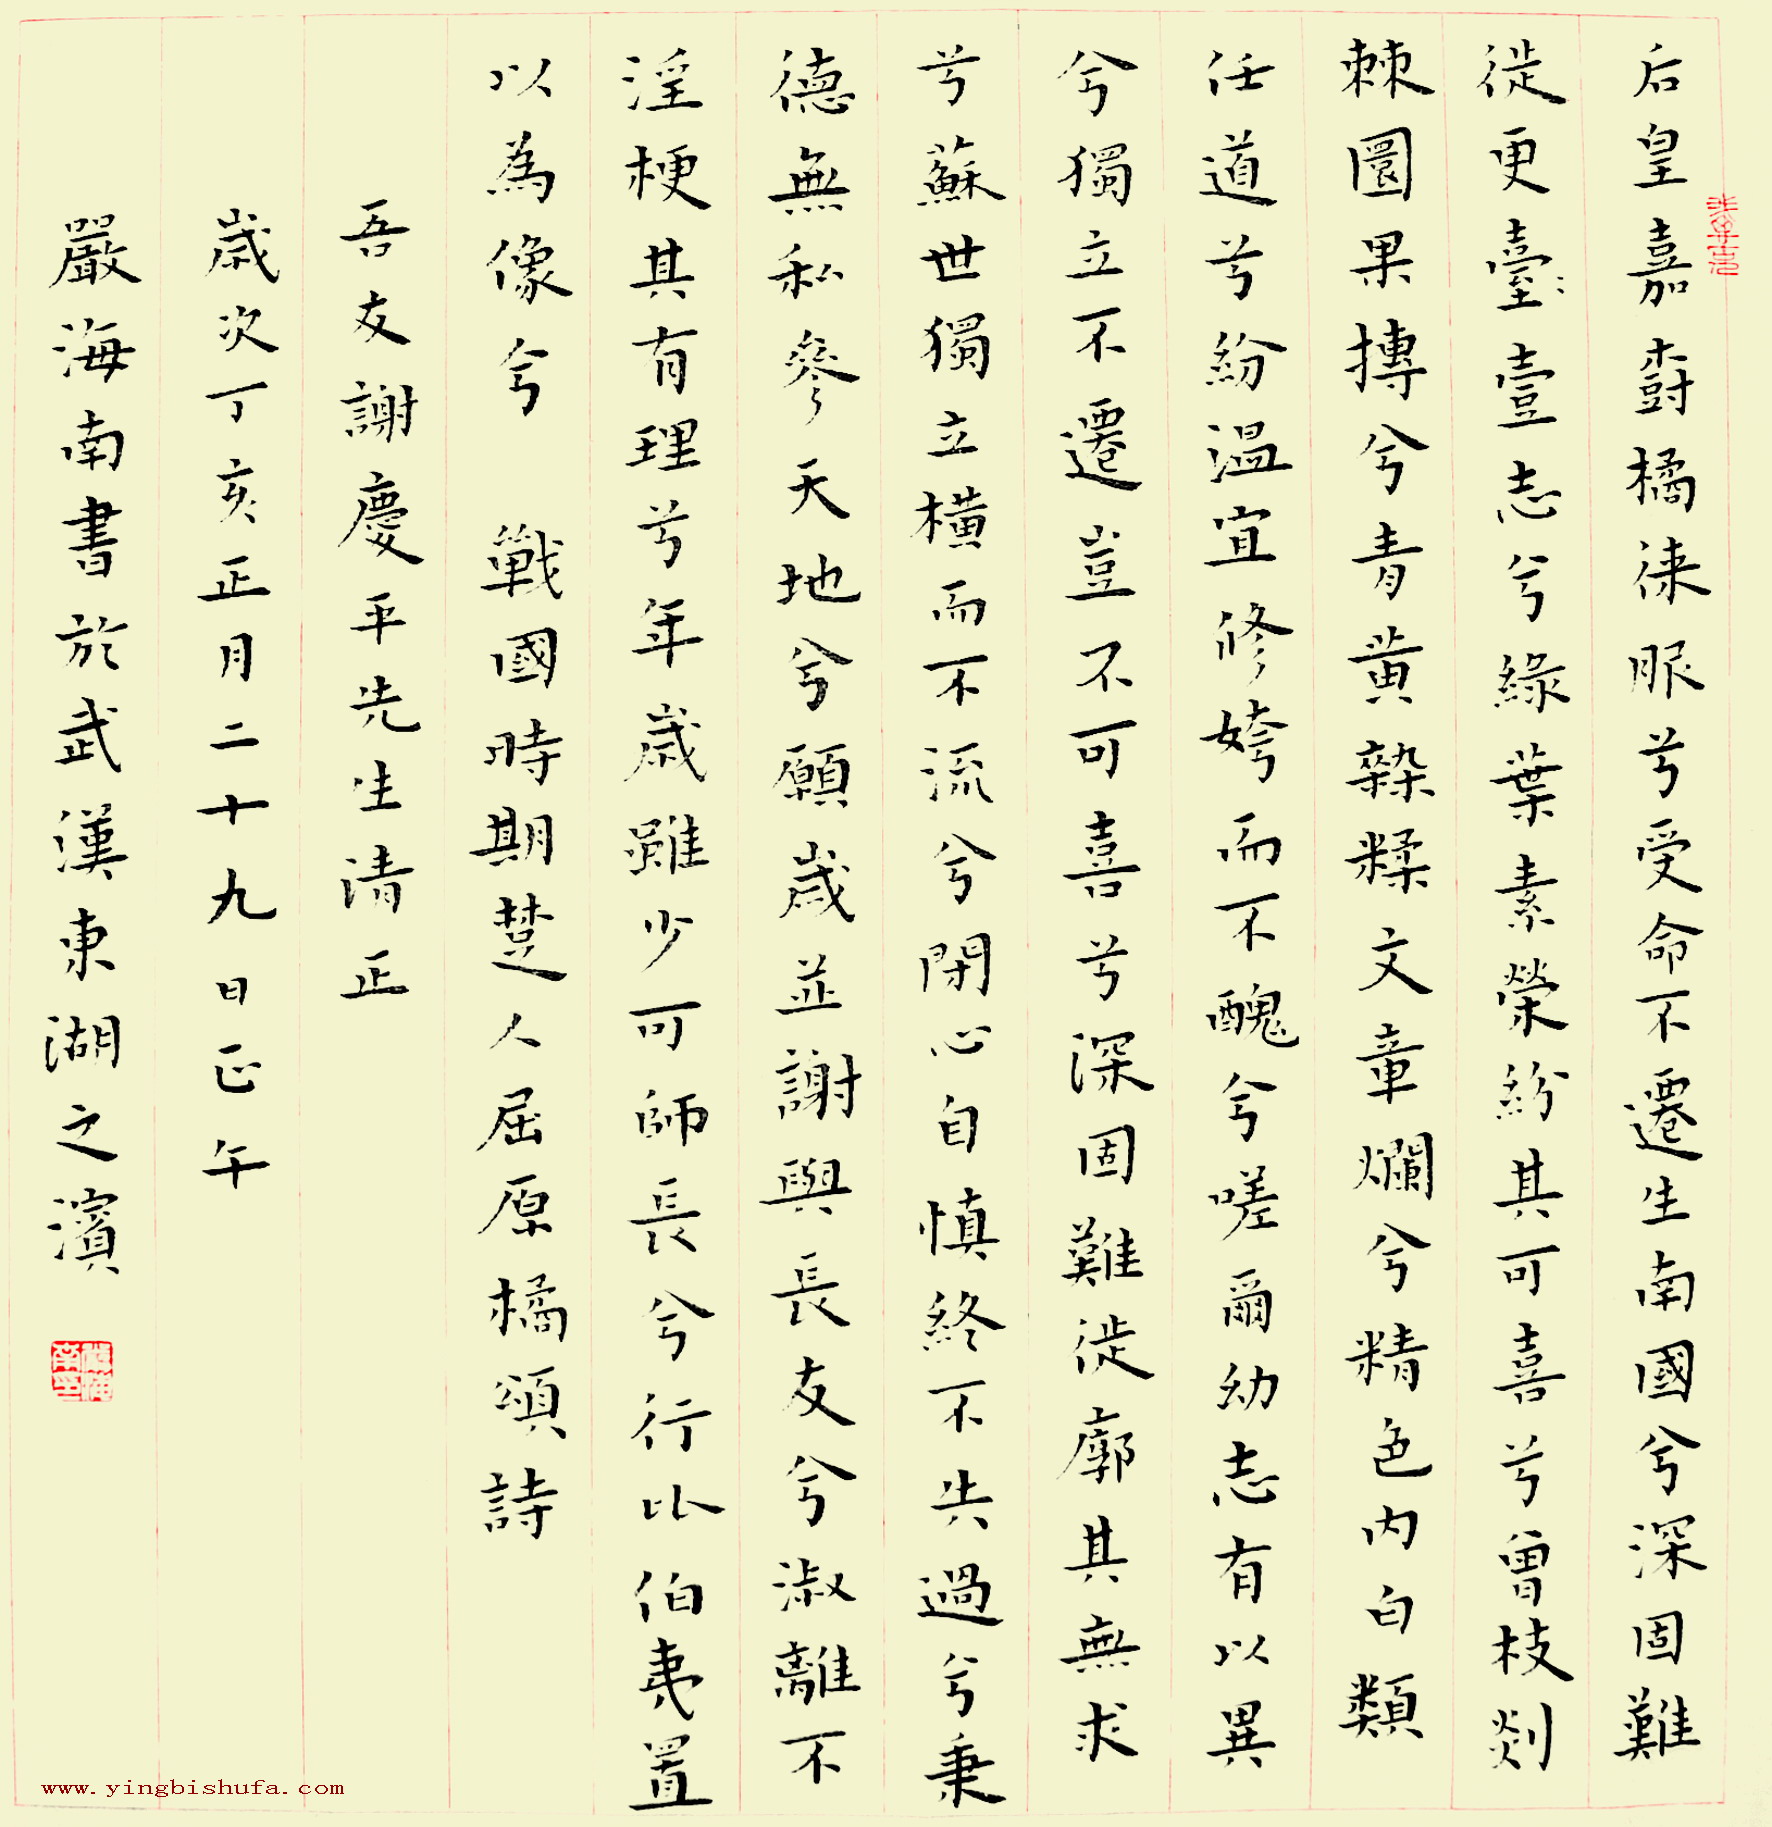 后皇嘉樹橘徠服兮受命不遷生南國兮深固難
徙更臺壹志兮綠葉素榮紛其可喜兮曾枝剡
棘圜果摶兮青黃雜糅文章爛兮精色内白類
任道兮紛温宜修姱而不醜兮嗟爾幼志有以異
兮獨立不遷豈不可喜兮深固難徙廓其無求
兮蘇世獨立橫而不流兮閉心自慎終不失過兮秉
德無私參天地兮願歲並謝與長友兮淑離不
淫梗其有理兮年歲雖少可師長兮行比伯夷置
以為像兮 戰國時期楚人屈原橘頌詩
吾友謝慶平先生清正
歲次丁亥正月二十九日正午
嚴海南書於武漢東湖之濱
嚴海南印
www.yingbishufa.com